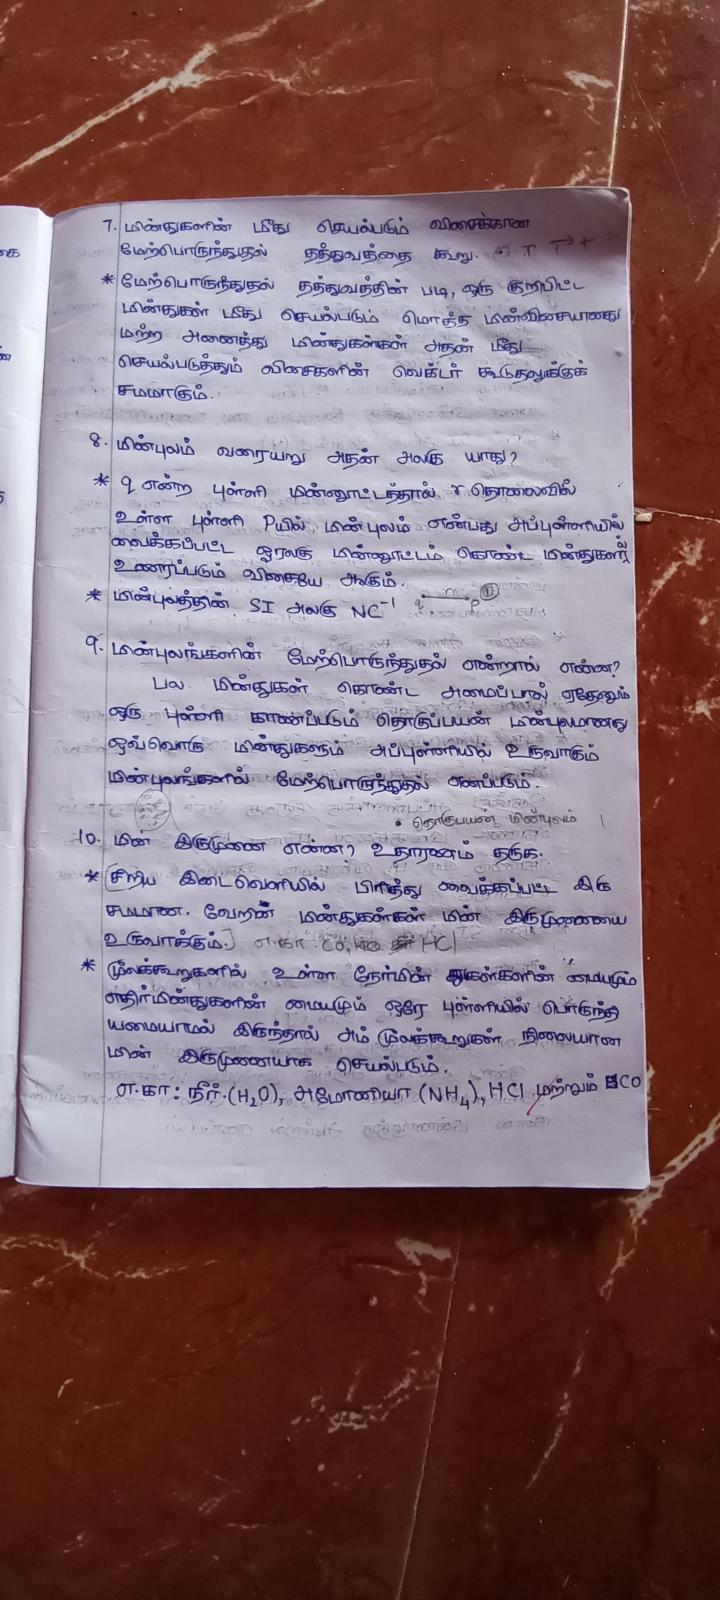 7. மின்துகளின் மீது செயல்படும் விசைக்கான
மேற்பொருந்துதல் தத்துவத்தை கூறு.
* மேற்பொருந்துதல் தத்துவத்தின் படி, ஒரு குறிபிட்ட
மின்துகள் மீது செயல்படும் மொத்த மின்விசையானது
மற்ற அனைத்து மின்துகள்கள் அதன் மீது
செயல்படுத்தும் விசைகளின் வெக்டர் கூடுதலுக்குக்
சமமாகும்.
8. மின்புலம் வரையறு அதன் அலகு யாது?
* q என்ற புள்ளி மின்னூட்டத்தால் r தொலைவில்
உள்ள புள்ளி Pயில் மின்புலம் என்பது அப்புள்ளியில்
வைக்கப்பட்ட ஓரலகு மின்னூட்டம் கொண்ட மின்துகளால்
உணரப்படும் விசையே ஆகும்.
* மின்புலத்தின் SI அலகு NC⁻¹ q P
9. மின்புலங்களின் மேற்பொருந்துதல் என்றால் என்ன?
பல மின்துகள் கொண்ட அமைப்பால் ஏதேனும்
ஒரு புள்ளி காணப்படும் தொகுப்பயன் மின்புலமானது
ஒவ்வொரு மின்துகளும் அப்புள்ளியில் உருவாகும்
மின்புலங்களில் மேற்பொருந்துதல் எனப்படும்.
• தொகுபயன் மின்புலம்
10. மின் இருமுனை என்ன? உதாரணம் தருக.
* சிறிய இடைவெளியில் பிரித்து வைக்கப்பட்ட இரு
சமமான. வேறின மின்துகள்கள் மின் இருமுனையை
உருவாக்கும்.] எ.கா CO, HCl
* மூலக்கூறுகளில் உள்ள நேர்மின் துகள்களின் மையமும்
எதிர்மின்துகளின் மையமும் ஒரே புள்ளியில் பொருந்தி
யமையாமல் இருந்தால் அம் மூலக்கூறுகள் நிலையான
மின் இருமுனையாக செயல்படும்.
எ.கா: நீர் (H₂O), அமோனியா (NH₄), HCl மற்றும் CO